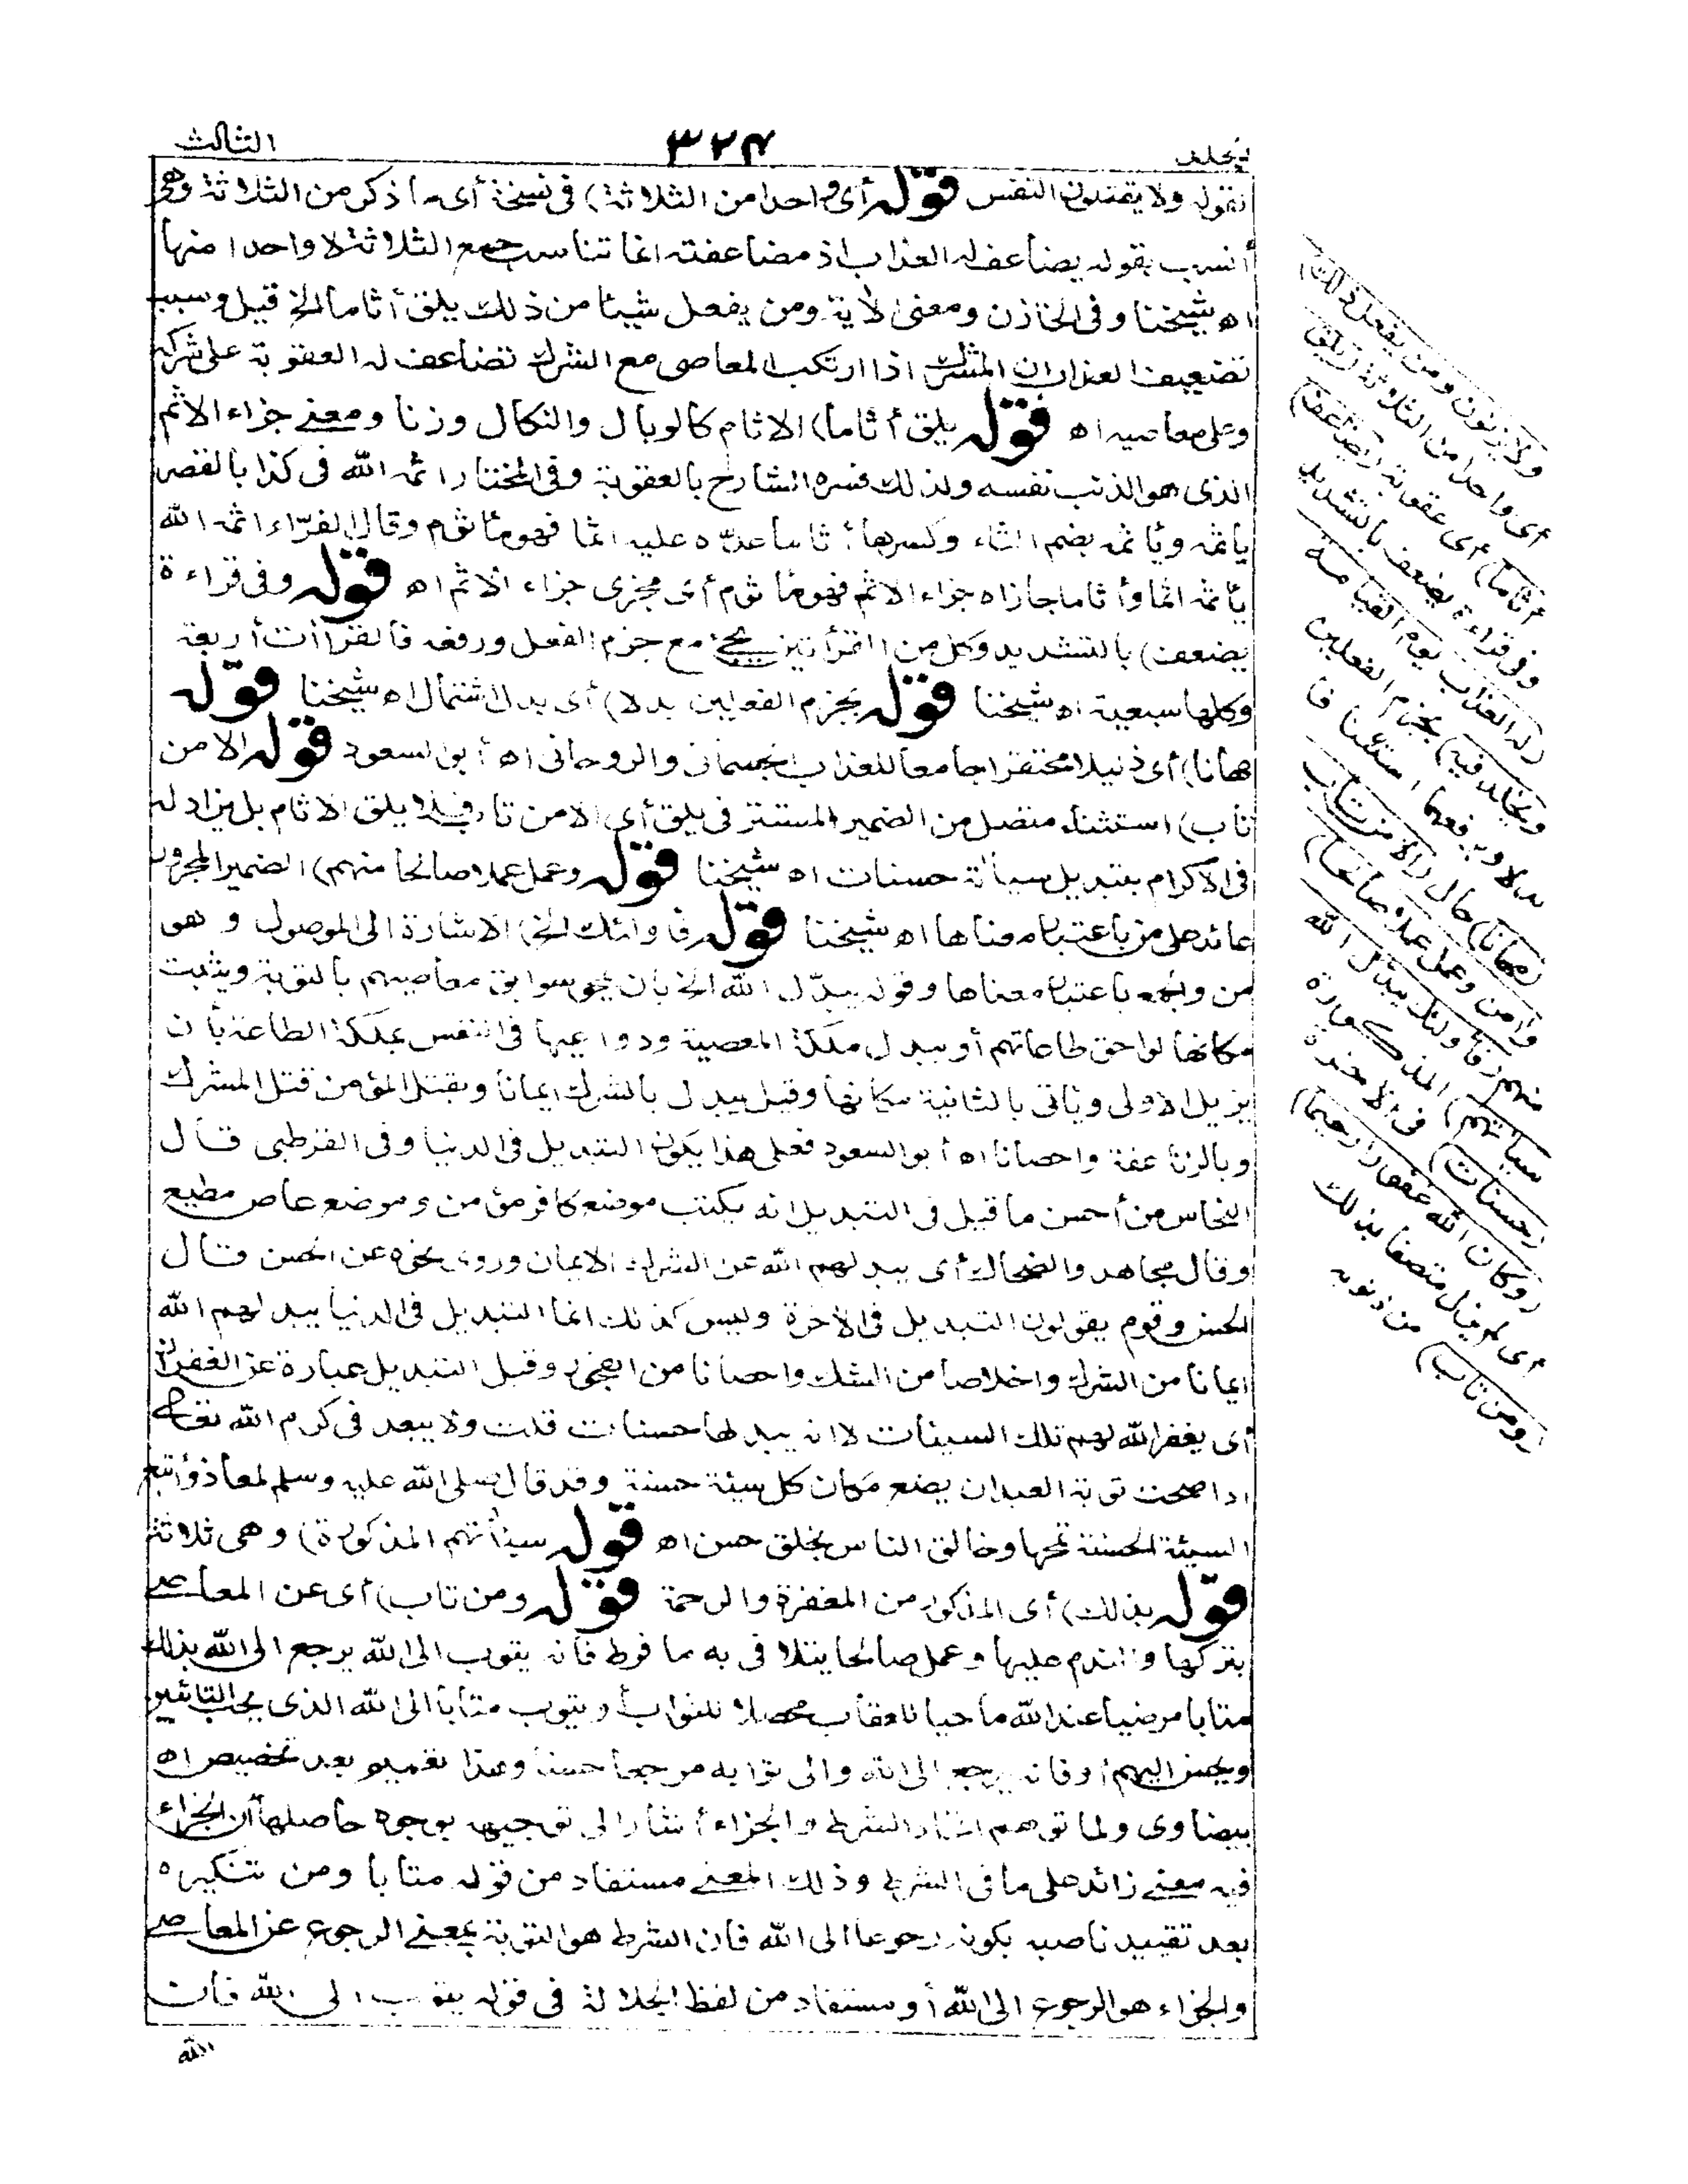 الثالث
٣٢٤
المجلد
بقوله ولا يقتلون النفس قوله أى واحدا من الثلاثة) فى نسخة أى ما ذكر من الثلاثة وهى
أنسب بقوله يضاعف له العذاب اذ مضاعفته انما تناسب جمع الثلاثة لا واحدا منها
اه شيخنا وفى الخازن ومعنى الاية ومن يفعل شيئا من ذلك يلق أثاما الخ قيل وسبب
تضعيف العذاب ان المشرك اذا ارتكب المعاصى مع الشرك تضاعف له العقوبة على شركه
وعلى معاصيه اه قوله يلق أثاما) الاثام كالوبال والنكال وزنا ومعنى جزاء الاثم
الذى هو الذنب نفسه ولذلك فسره الشارح بالعقوبة وفى المختار اثمه الله فى كذا بالقصر
يأثمه ويأثمه بضم الثاء وكسرها أثاما عده عليه اثما فهو مأثوم وقال الفرّاء اثمه الله
يأثمه اثما وأثاما جازاه جزاء الاثم فهو مأثوم أى مجزى جزاء الاثم اه قوله وفى قراءة
يضعف) بالتشديد وكل من القرأتين يجئ مع جزم الفعل ورفعه فالقرأات أربعة
وكلها سبعية اه شيخنا قوله بجزم الفعلين بدلا) أى بدل اشتمال اه شيخنا قوله
مهانا) أى ذليلا محتقرا جامعا للعذاب الجسمانى والروحانى اه أبو السعود قوله الا من
تاب) استثناء متصل من الضمير المستتر فى يلق أى الا من تاب فلا يلق الاثام بل يزاد له
فى الاكرام بتبديل سيأته حسنات اه شيخنا قوله وعمل عملا صالحا منهم) الضمير المجرور
عائد على من باعتبار معناها اه شيخنا قوله فاولئك الخ) الاشارة الى الموصول وهو
من والجمع باعتبار معناها وقوله يبدّل الله الخ بان يمحو سوابق معاصيهم بالتوبة ويثبت
مكانها لواحق طاعاتهم أو يبدل ملكة المعصية ودواعيها فى النفس بملكة الطاعة بأن
يزيل الاولى ويأتى بالثانية مكانها وقيل يبدل بالشرك ايمانا وبقتل المؤمن قتل المشرك
وبالزنا عفة واحصانا اه أبو السعود فعلى هذا يكون التبديل فى الدنيا وفى القرطبى قال
النحاس من أحسن ما قيل فى التبديل انه يكتب موضع كافر مؤمن وموضع عاص مطيع
وقال مجاهد والضحاك أى يبدلهم الله عن الشرك الايمان وروى نحوه عن الحسن قال
الحسن وقوم يقولون التبديل فى الاخرة وليس كذلك انما التبديل فى الدنيا يبدلهم الله
ايمانا من الشرك واخلاصا من الشك واحصانا من الفجور وقيل التبديل عبارة عن الغفران
أى يغفر الله لهم تلك السيئات لا انه يبدلها حسنات قلت ولا يبعد فى كرم الله تعالى
اذا صحت توبة العبد ان يضع مكان كل سيئة حسنة وقد قال صلى الله عليه وسلم لمعاذ وأتبع
السيئة الحسنة تمحها وخالق الناس بخلق حسن اه قوله سيأتهم المذكورة) وهى ثلاثة
قوله بذلك) أى المذكور من المغفرة والرحمة قوله ومن تاب) أى عن المعاصى
بتركها والندم عليها وعمل صالحا يتلافى به ما فرط فانه يتوب الى الله يرجع الى الله بذلك
متابا مرضيا عند الله ماحيا للعقاب محصلا للثواب أو يتوب متابا الى الله الذى يحب التائبين
ويحسن اليهم أو فانه يرجع الى الله والى ثوابه مرجعا حسنا وهذا تعميم بعد تخصيص اه
بيضاوى ولما توهم اتحاد الشرط والجزاء أشار الى توجيهه بوجوه حاصلها أن الجزاء
فيه معنى زائد على ما فى الشرط وذلك المعنى مستفاد من قوله متابا ومن تنكيره
بعد تقييد ناصبه بكونه رجوعا الى الله فان الشرط هو التوبة بمعنى الرجوع عن المعاصى
والجزاء هو الرجوع الى الله أو مستفاد من لفظ الجلالة فى قوله يتوب الى الله فان
الله
ولا يزنون ومن يفعل ذلك)
أى واحدا من الثلاثة (يلق
أثاما) أى عقوبة (يضاعف)
وفى قراءة يضعف بالتشديد
(له العذاب يوم القيامة
ويخلد فيه) بجزم الفعلين
بدلا وبرفعهما استئنافا
(مهانا) حال (الا من تاب
وآمن وعمل عملا صالحا)
منهم (فأولئك يبدّل الله
سيأتهم) المذكورة
(حسنات) فى الاخرة
(وكان الله غفورا رحيما)
أى لم يزل متصفا بذلك
(ومن تاب) من ذنوبه